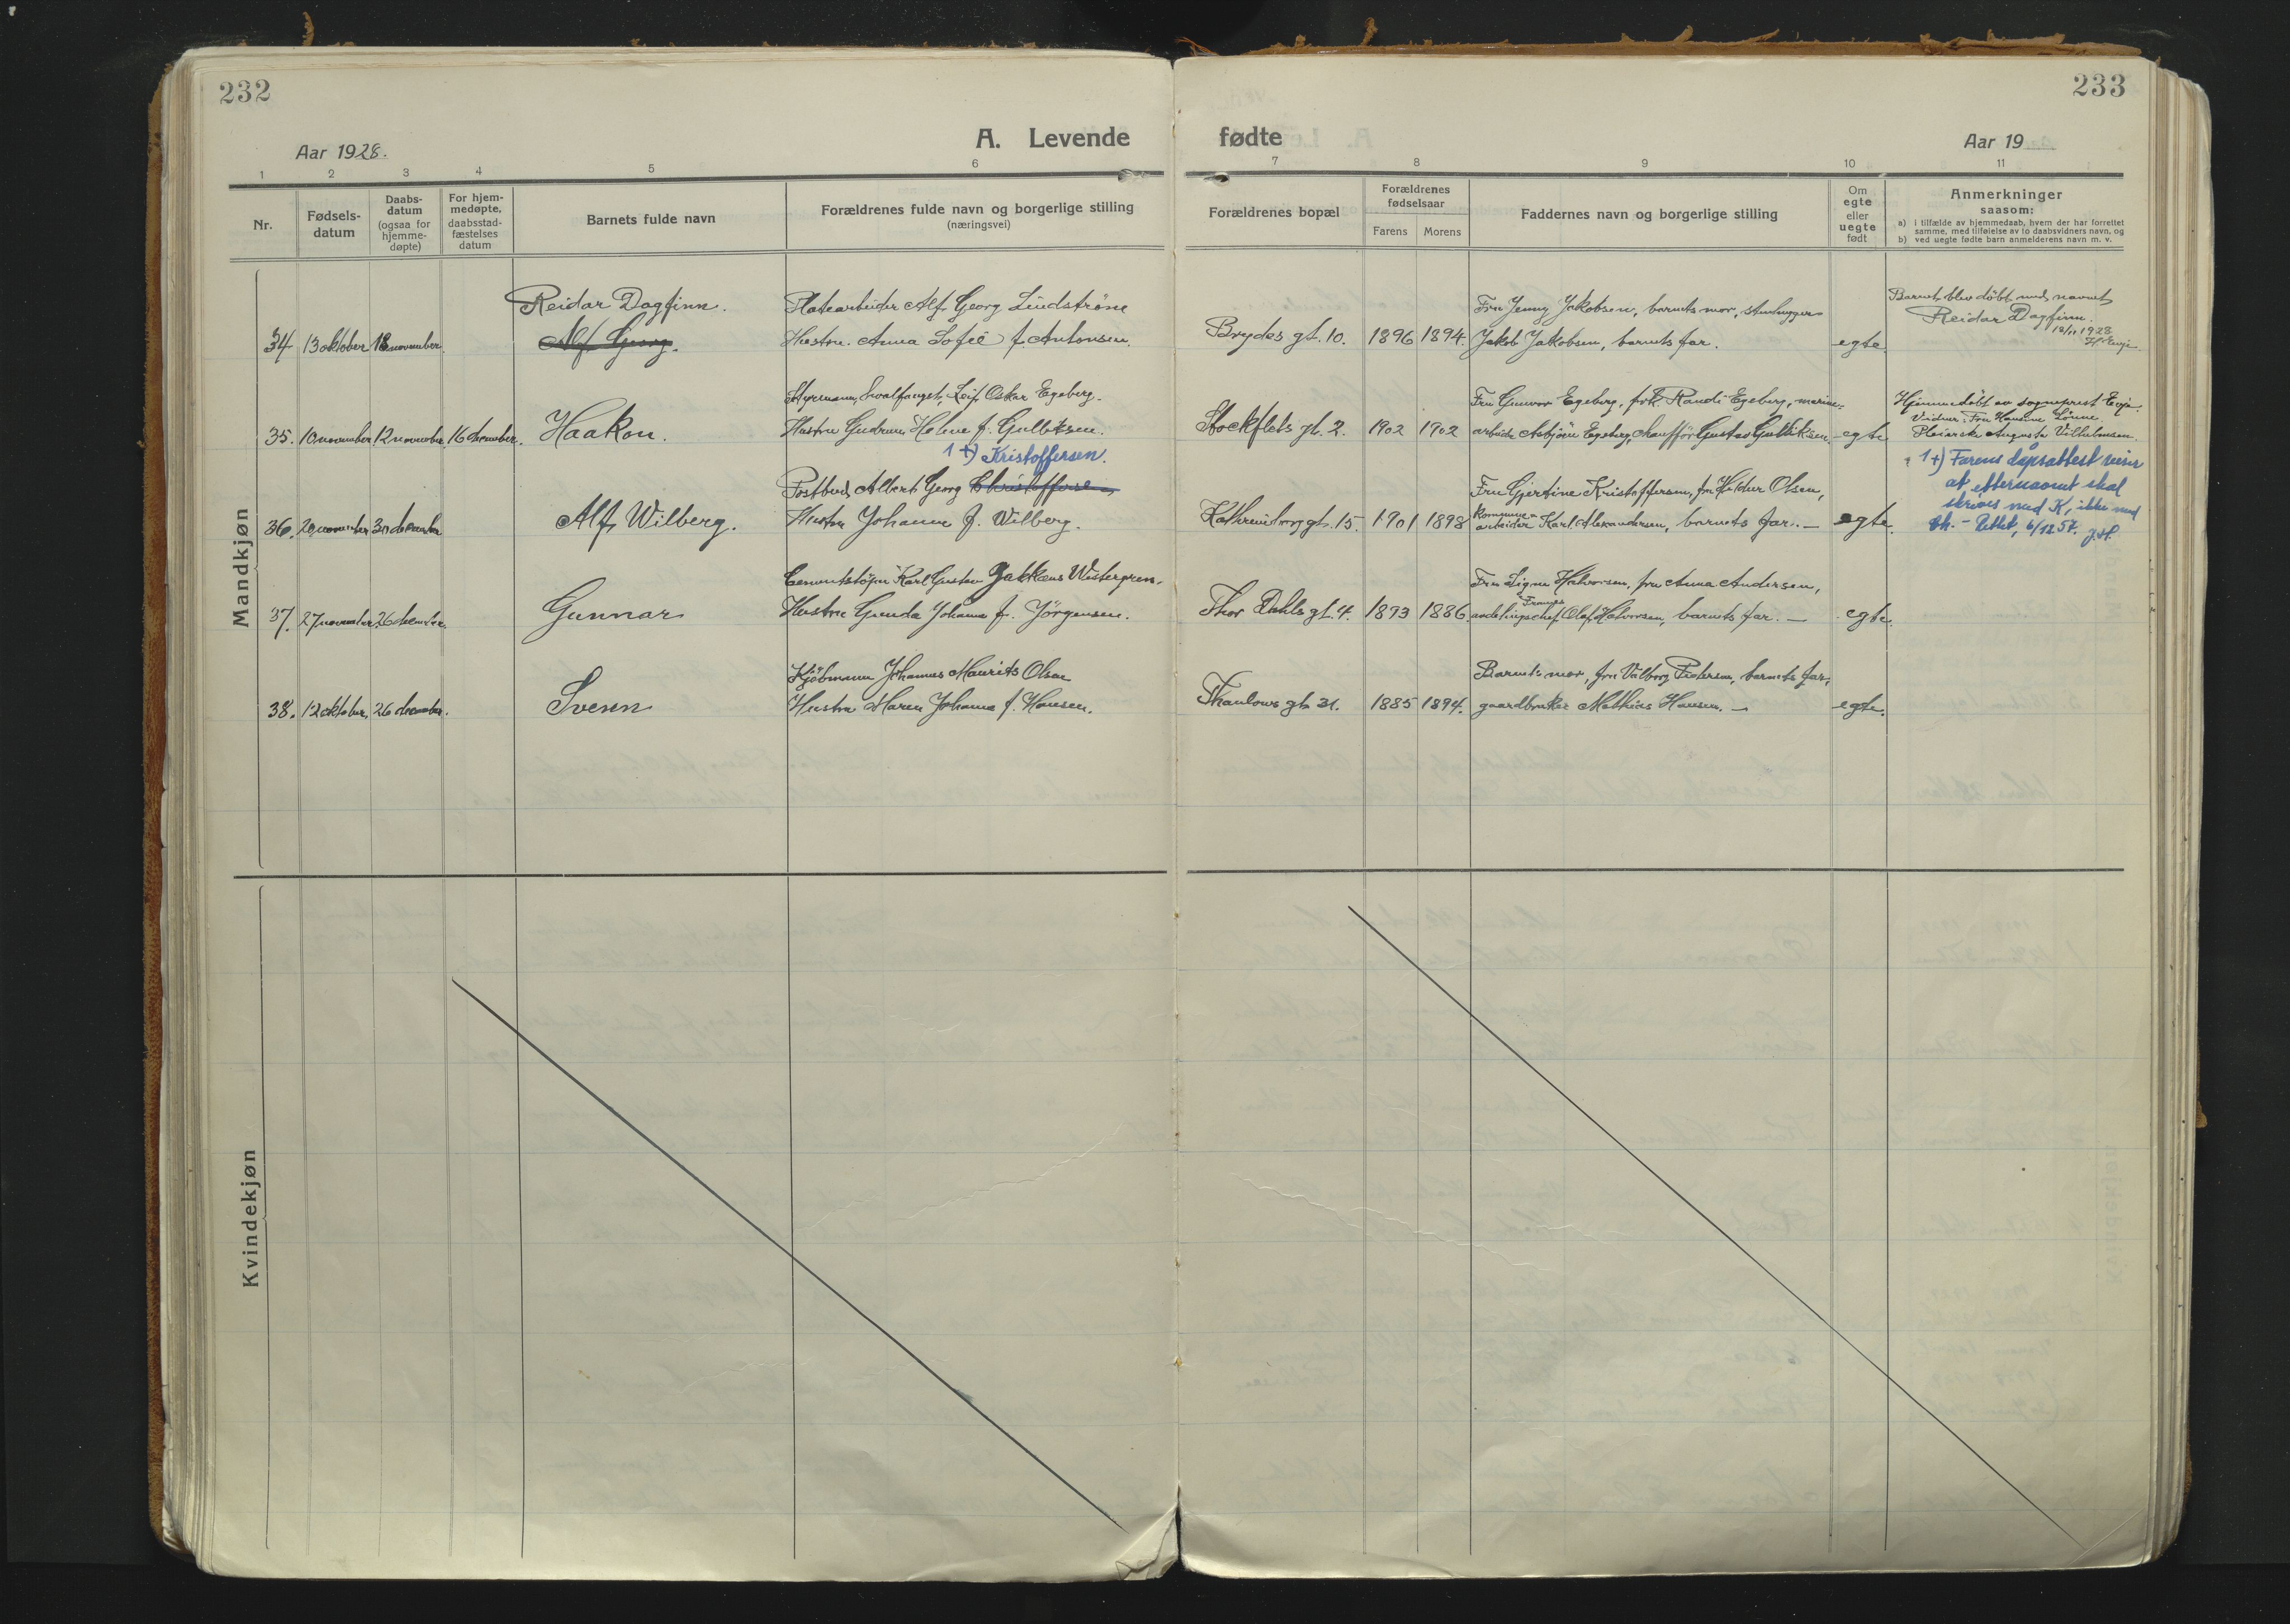 232
Aar 1928.
A. Levende
1 2 3 4 5 6
Nr.
Fødsels-
datum
Daabs-
datum
(ogsaa for
hjemme-
døpte)
For hjem-
medøpte,
daabsstad-
fæstelses
datum
Barnets fulde navn
Forældrenes fulde navn og borgerlige stilling
(næringsvei)
Mandkjøn
Reidar Dagfinn.
Alf Georg Lindstrøm
34 13 oktober 18 november.
Alf Georg.
Hustru Anna Sofie f. Antonsen.
Leif Oskar Egeberg.
35. 10 november 12 november 16 december.
Haakon.
Hustru Gudrun Helene f. Gulliksen.
1+) Kristoffersen.
Postbud Albert Georg Christoffersen
36. 20 november 30 december
Alf Wilberg.
Hustru Johanne f. Wilberg.
Karl Gustav Westergren.
37. 27 november 26 december.
Gunnar
Hustru Johanne f. Jörgensen.
Kjöbmann Johannes Maurits Olsen
38. 12 oktober, 26 december.
Svenn
Hustru Maren Johanne f. Hansen.
Kvindekjøn
233
fødte
Aar 19
7 8 9 10 11
Forældrenes bopæl
Forældrenes
fødselsaar
Farens Morens
Faddernes navn og borgerlige stilling
Om
egte
eller
uegte
født
Anmerkninger
saasom:
a) i tilfælde av hjemmedaab, hvem der har forrettet
samme, med tilføielse av to daabsvidners navn, og
b) ved uegte fødte barn anmelderens navn m. v.
Fru Jenny Jakobsen, barnets mor, stenhugger
Brydes gt. 10. 1896 1894. Jakob Jakobsen, barnets far.
egte.
Barnet blev döbt med navnet
Reidar Dagfinn.
18/11 1928
H. Evje.
Fru Gunvor Egeberg, frk. Randi Egeberg, marine-
Stockflets gt. 2. 1902 1902 arbeider Asbjörn Egeberg, chaufför Gustav Gulliksen.
egte
Hjemmedöbt av sogneprest Evje.
Vidner: Fru Hanna Lönne
Pleierske Augusta Vilhelmsen.
1+) Farens dåpsattest viser
at etternavnet skal
skrives med K, ikke med
Ch. - Rettet, 6/12 57. J.H.
Fru Gjertine Kristoffersen, fru Hildur Olsen,
Kathrineborggt. 15. 1901 1898 kommune-
arbeider Karl Alexandersen, barnets far. —
egte.
Fru Signe Halvorsen, fru Anna Andersen,
Framnes
Thor Dahls gt. 4. 1893 1886. avdelingschef Olaf Halvorsen, barnets far. —
egte.
Barnets mor, fru Valborg Pedersen, barnets far,
Thaulows gt. 31. 1885 1894. gaardbruker Mathias Hansen. —
egte.